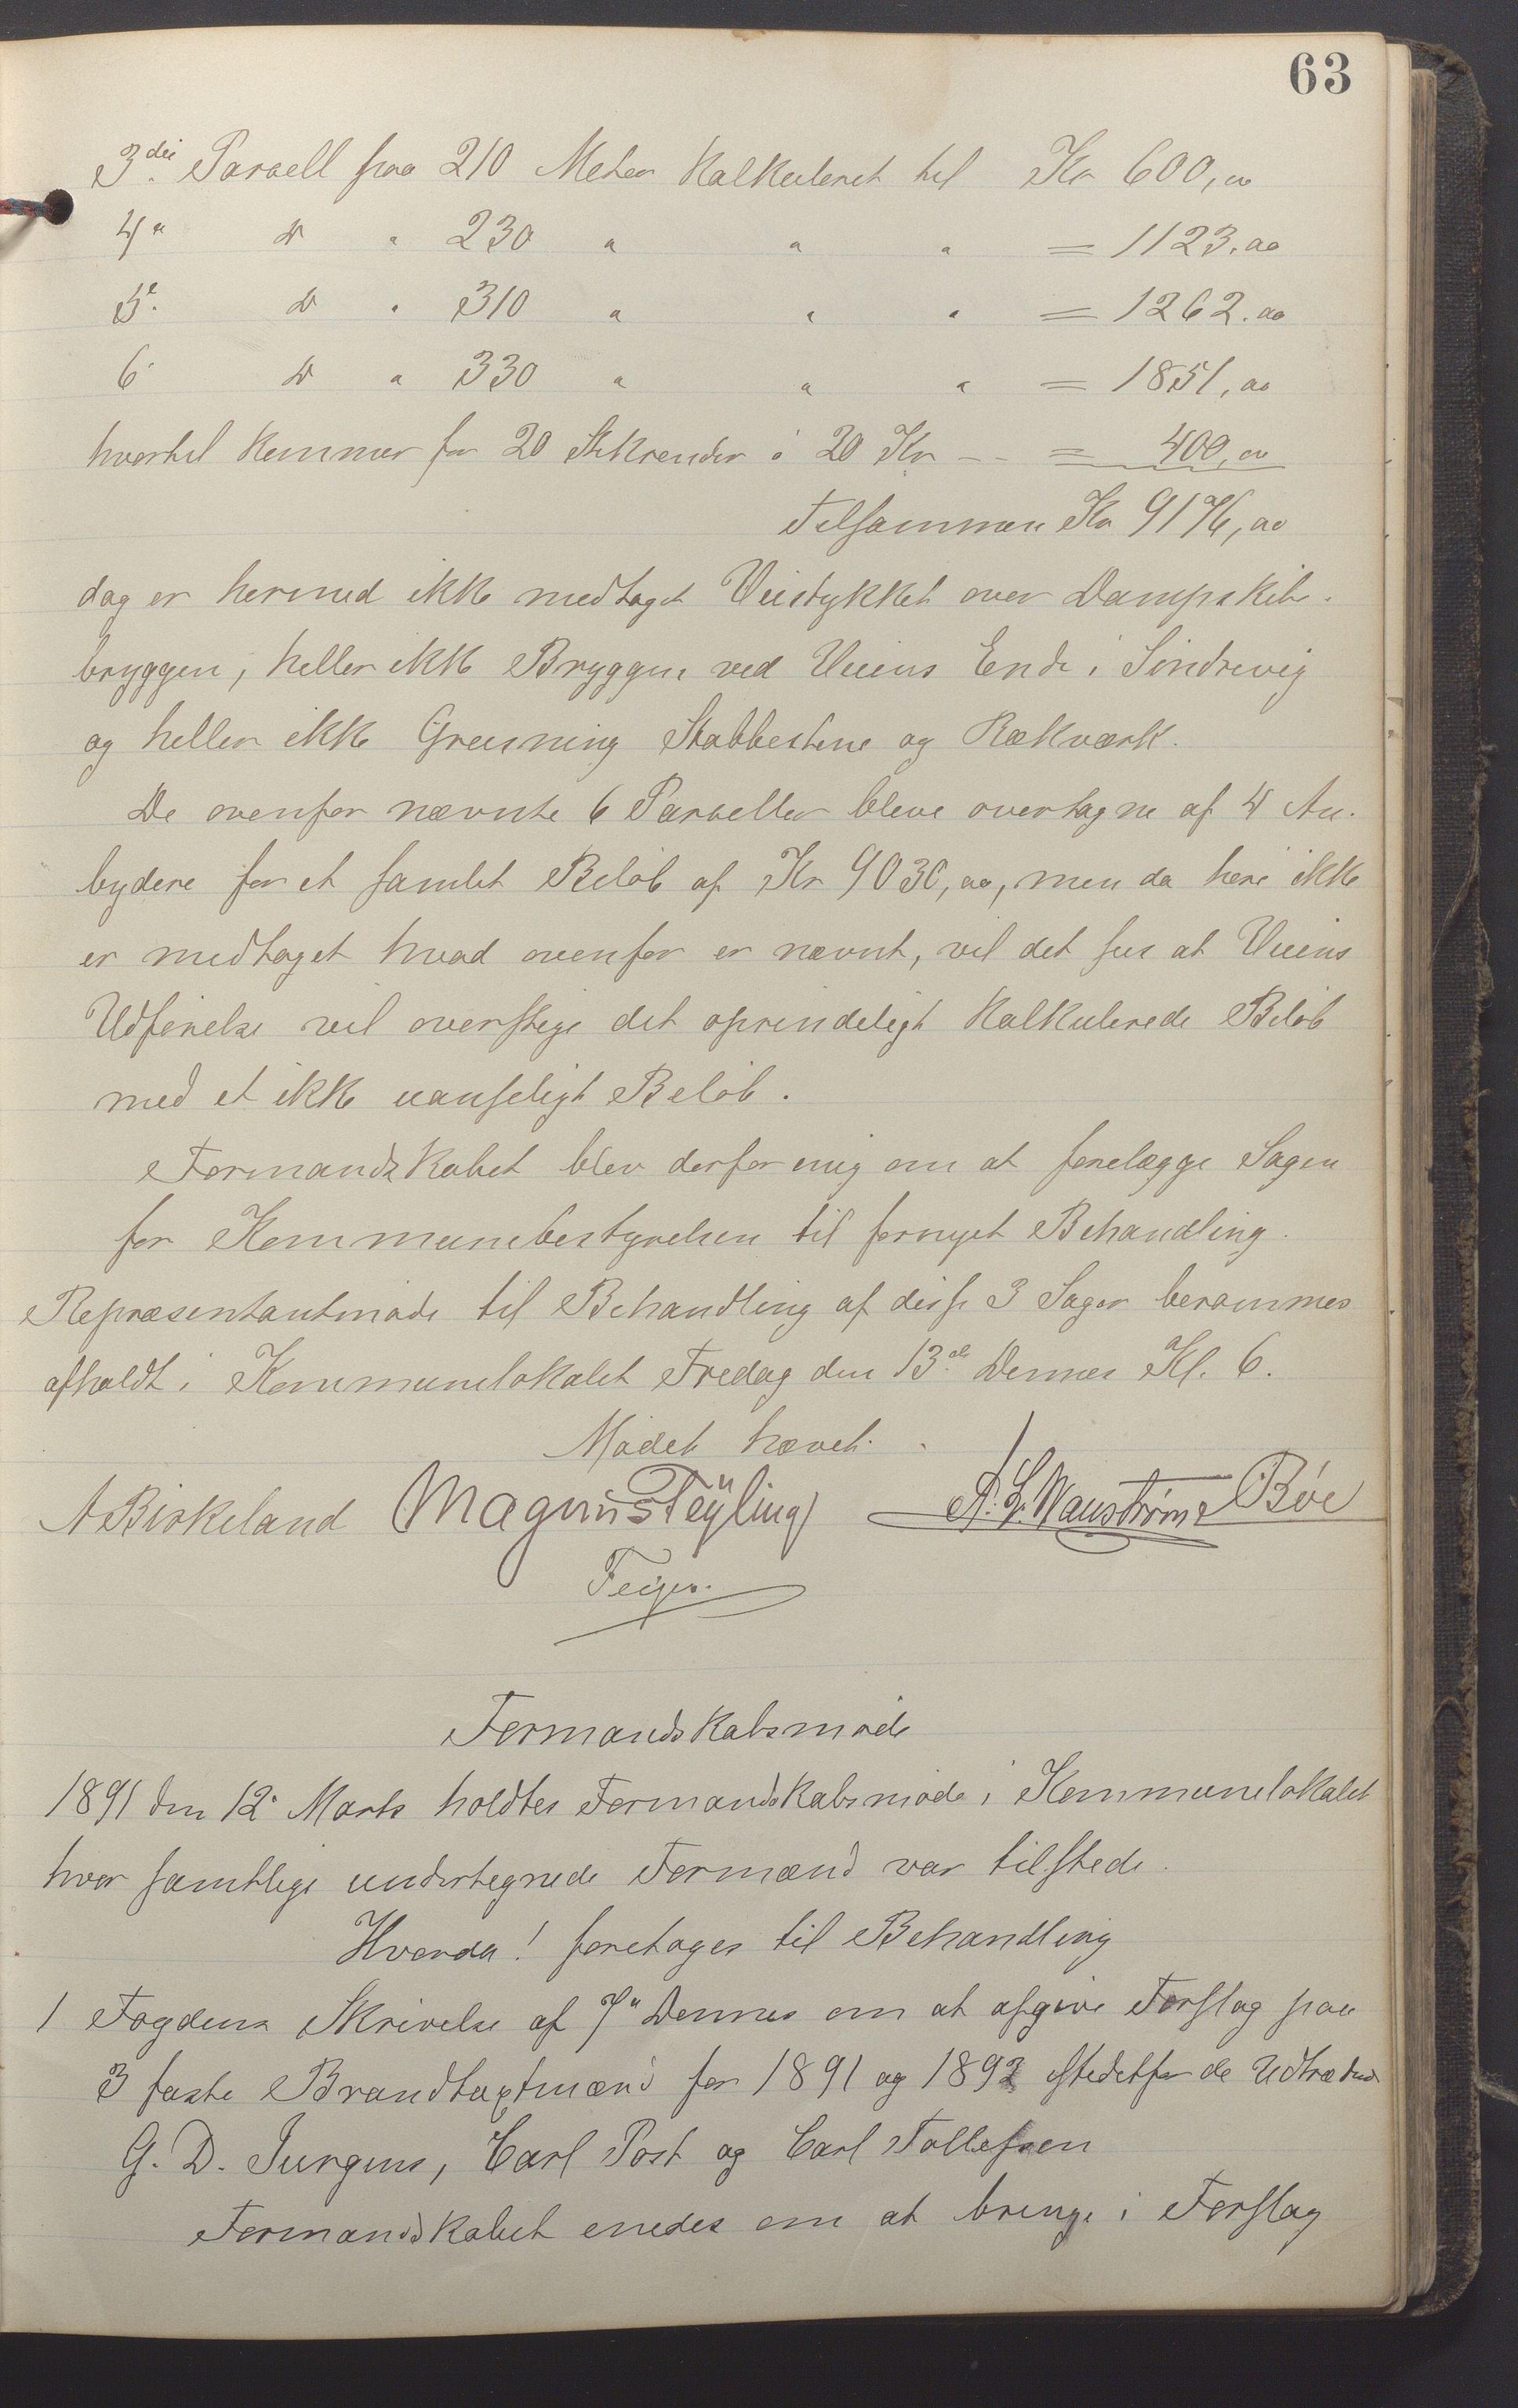 63
3die Parcell paa 210 Meter Kalkuleret til Kr 600,00
4" D " 230 " " " = 1123.00
5e. D " 310 " " " = 1262.00
6 D " 330 " " " = 1851,00
hvortil kommer for 20 Stikrender á 20 Kr -- = 400,00
Tilsammen Kr 9176,00
dog er hermed ikke medtaget Veistykket over Dampskibs-
bryggen, heller ikke Bryggen ved Veiens Ende i Sindrevig
og heller ikke Greusning Stabbestene og Rækværk.
De ovenfor nævnte 6 Parceller bleve overtagne af 4 An-
bydere for et samlet Beløb af Kr 9030,00, men da heri ikke
er medtaget hvad ovenfor er nævnt, vil det sees at Veiens
Udførelse vil overstige det oprindeligt Kalkulerede Beløb
med et ikke uanseligt Beløb.
Formandskabet blev derfor enig om at forelægge Sagen
for Kommunebestyrelsen til fornyet Behandling.
Repræsentantmøde til Behandling af disse 3 Sager berammes
afholdt i Kommunelokalet Fredag den 13de Dennes Kl. 6.
Mødet hævet.
A Birkeland Magnus Teÿling Bøe
Formandskabsmøde
1891 den 12' Marts holdtes Formandskabsmøde i Kommunelokalet
hvor samtlige undertegnede Formænd var tilstede.
Hvorda! foretages til Behandling
1 Fogdens Skrivelse af 7" Dennes om at afgive Forslag paa
3 faste Brandtaxtmænd for 1891 og 1892 istedetfor de Udtrædende
G. D. Jurgens, Carl Post og Carl Tollefsen
Formandskabet enedes om at bringe i Forslag